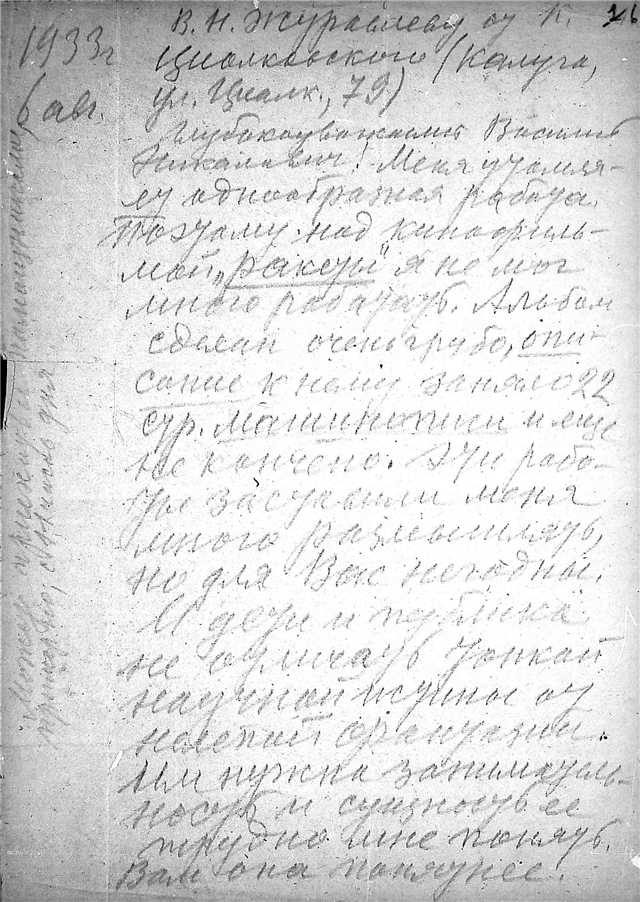 1933 г
6 авг.
В. Н. Журавлеву от К.
Циолковского (Калуга,
ул. Циолк., 79)
Глубокоуважаемый Василий
Николаевич! Меня утомля-
ет однообразная работа.
Поэтому над кинофиль-
мой „ракеты" я не мог
много работать. Альбом
сделан очень грубо, опи-
сание к нему заняло 22
стр. машинописи и еще
не кончено. Эти рабо-
ты заставили меня
много размышлять,
но для Вас негодны.
И дети и публика
не отличать тонкой
научной истины от
нелепой фантазии.
Им нужна заниматель-
ность и сущность ее
трудно мне понять.
Вам она понятнее.
Может
примерно,